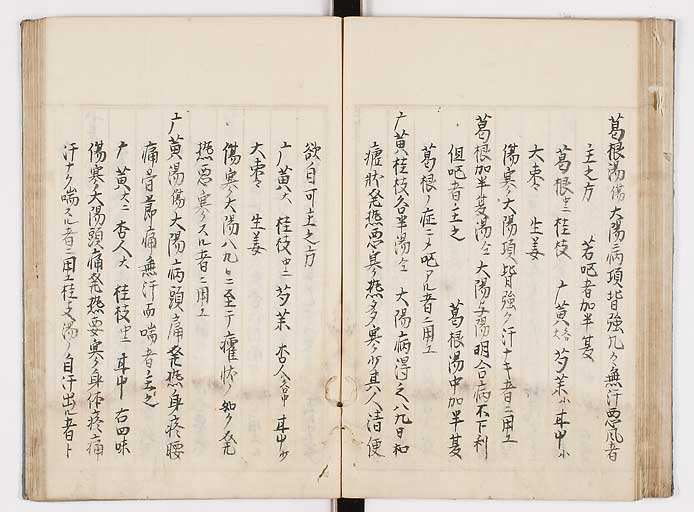 葛根湯傷 大陽病項背強几々無汗悪風者
主之方 若呕者加半夏
葛根 桂枝 广黄 芍薬小 耳中小
大枣 生姜
傷寒大陽項背強ク汗ナキ者ニ用ユ
葛根加半夏湯仝 大陽与陽明合病不下利
但呕者主之 葛根湯中加半夏
葛根ノ症ニメ呕アル者ニ用ユ
广黄桂枝各半湯仝 大陽病得之八九日如
瘧状発熱悪寒熱多寒少其人清便
欲自可主之方
广黄 桂枝 芍薬 杏人 耳中
大枣 生姜
傷寒大陽八九日ニ至テ瘧状ノ如ク発
熱悪寒スル者ニ用ユ
广黄湯傷 大陽病頭痛発熱身疼腰
痛骨節痛無汗而喘者主之
广黄大 杏人大 桂枝 耳中 右四味
傷寒大陽頭痛発熱悪寒身体疼痛
汗ナク喘スル者ニ用ユ桂支湯ノ自汗出ル者ト